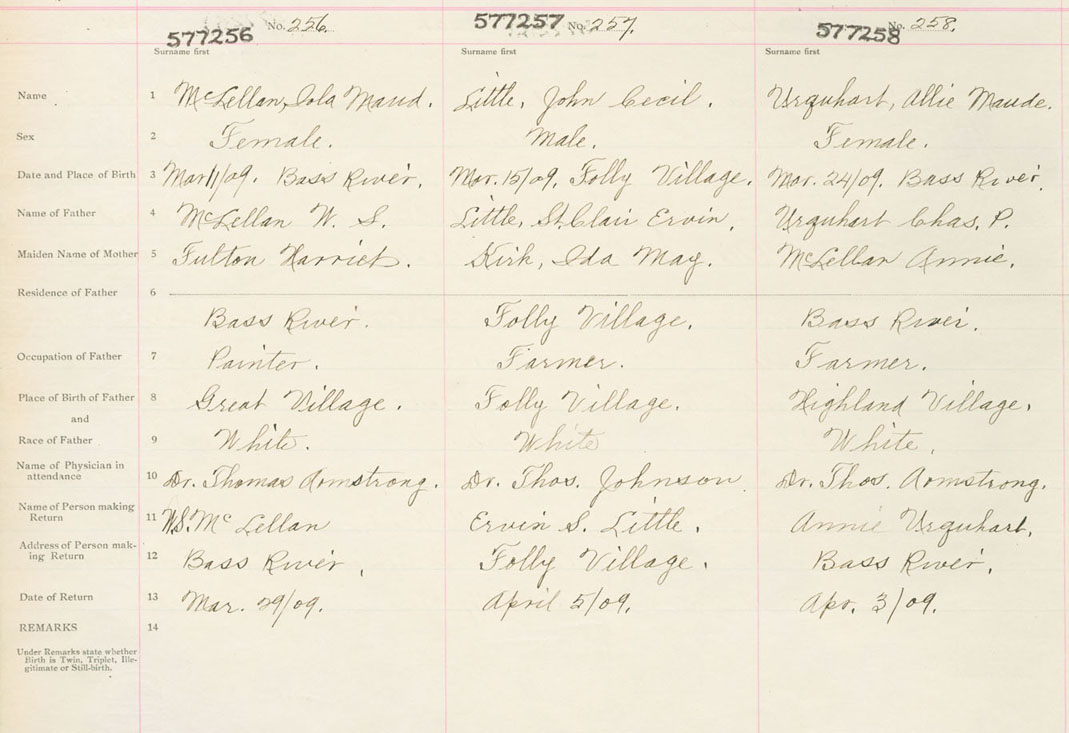 577256 No. 256. 577257 No. 257. 577258 No. 258.
Surname first Surname first Surname first
Name 1 McLellan, Iola Maud. Little, John Cecil. Urquhart, Allie Maude.
Sex 2 Female. Male. Female.
Date and Place of Birth 3 Mar 11/09. Bass River. Mar. 15/09. Folly Village. Mar. 24/09. Bass River.
Name of Father 4 McLellan W. S. Little, St. Clair Ervin. Urquhart Chas. P.
Maiden Name of Mother 5 Fulton Harriet. Kirk, Ida May. McLellan Annie.
Residence of Father 6
Bass River. Folly Village. Bass River.
Occupation of Father 7 Painter. Farmer. Farmer.
Place of Birth of Father 8 Great Village. Folly Village. Highland Village.
and
Race of Father 9 White. White White.
Name of Physician in
attendance 10 Dr. Thomas Armstrong. Dr. Thos. Johnson Dr. Thos. Armstrong.
Name of Person making
Return 11 W.S. McLellan Ervin S. Little. Annie Urquhart.
Address of Person mak-
ing Return 12 Bass River, Folly Village. Bass River.
Date of Return 13 Mar. 29/09. April 5/09. Apr. 3/09.
REMARKS 14
Under Remarks state whether
Birth is Twin, Triplet, Ille-
gitimate or Still-birth.